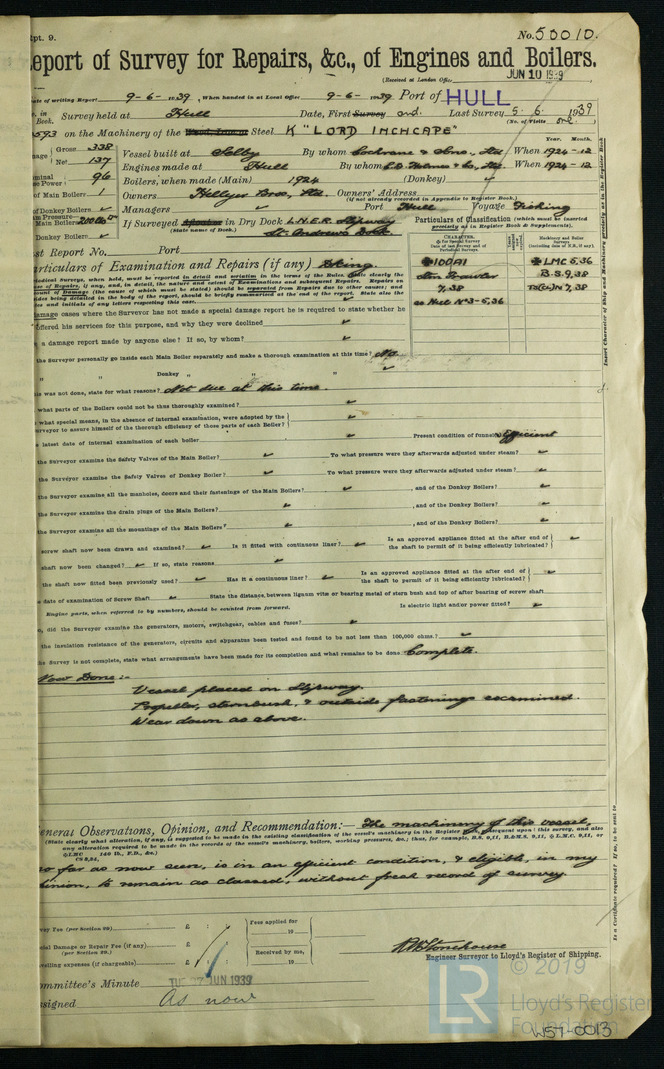 Rpt. 9.
No. 50010.
Report of Survey for Repairs, &c., of Engines and Boilers.
(Received at London Office
JUN 10 1939
Date of writing Report 9-6-1939, When handed in at Local Office 9-6-1939 Port of HULL
in Book. Survey held at Hull Date, First Survey and Last Survey 5.6.1939
(No. of Visits one)
on the Machinery of the Steel K "LORD INCHCAPE"
Gross 338
Net 137
Vessel built at Selby By whom Cochrane & Sons, Ltd. When 1924-12
Year. Month.
Engines made at Hull By whom C.D. Holmes & Co, Ltd. When 1924-12
96
Boilers, when made (Main) 1924 (Donkey)
of Main Boilers 1
Owners Hellyer Bros, Ltd. Owners' Address
(if not already recorded in Appendix to Register Book.)
of Donkey Boilers
Managers Port Hull Voyage Fishing
Pressure 200 lb
If Surveyed Afloat or in Dry Dock L.N.E.R. Slipway
(State name of Dock.) St. Andrews Dock
Donkey Boilers
Particulars of Classification (which must be inserted precisely as in Register Book & Supplements).
Last Report No. Port
CHARACTER.
Machinery and Boiler Surveys
100A1 LMC 5,36
Stm Trawler B.S. 9,38
7,38 TS(CL)N 7,38
ss Hull No3-5,36
Particulars of Examination and Repairs (if any) Docking
damage cases where the Surveyor has not made a special damage report he is required to state whether he
offered his services for this purpose, and why they were declined
a damage report made by anyone else? If so, by whom?
the Surveyor personally go inside each Main Boiler separately and make a thorough examination at this time? No
" Donkey " " "
is was not done, state for what reasons? Not due at this time.
what parts of the Boilers could not be thus thoroughly examined?
what special means, in the absence of internal examination, were adopted by the
Surveyor to assure himself of the thorough efficiency of those parts of each Boiler?
latest date of internal examination of each boiler Present condition of funnel Efficient
the Surveyor examine the Safety Valves of the Main Boiler? To what pressure were they afterwards adjusted under steam?
the Surveyor examine the Safety Valves of Donkey Boiler? To what pressure were they afterwards adjusted under steam?
the Surveyor examine all the manholes, doors and their fastenings of the Main Boilers? , and of the Donkey Boilers?
the Surveyor examine the drain plugs of the Main Boilers? , and of the Donkey Boilers?
the Surveyor examine all the mountings of the Main Boilers? , and of the Donkey Boilers?
screw shaft now been drawn and examined? Is it fitted with continuous liner? Is an approved appliance fitted at the after end of
the shaft to permit of it being efficiently lubricated?
shaft now been changed? If so, state reasons
the shaft now fitted been previously used? Has it a continuous liner? Is an approved appliance fitted at the after end of
the shaft to permit of it being efficiently lubricated?
date of examination of Screw Shaft State the distance between lignum vitæ or bearing metal of stern bush and top of after bearing of screw shaft
Engine parts, when referred to by numbers, should be counted from forward. Is electric light and/or power fitted?
did the Surveyor examine the generators, motors, switchgear, cables and fuses?
the insulation resistance of the generators, circuits and apparatus been tested and found to be not less than 100,000 ohms?
the Survey is not complete, state what arrangements have been made for its completion and what remains to be done Complete.
Now Done:-
Vessel placed on Slipway.
Propeller, sternbush, & outside fastenings examined.
Wear down as above.
General Observations, Opinion, and Recommendation:— The machinery of this vessel,
(State clearly what alteration, if any, is suggested to be made in the existing classification of the vessel's machinery in the Register Book, consequent upon this survey, and also
any alteration required to be made in the records of the vessel's machinery, boilers, working pressures, &c.; thus, for example, B.S. 9,11, B.&M.S. 9,11, LMC 9,11, or
LMC 140 lb., F.D., &c.)
so far as now seen, is in an efficient condition, & eligible, in my
opinion, to remain as classed, without fresh record of survey.
Survey Fee (per Section 29) £ : : Fees applied for
19
Special Damage or Repair Fee (if any) (per Section 29.) £ : : Received by me,
Travelling expenses (if chargeable) £ : : 19
R.H. Stonehouse
Engineer Surveyor to Lloyd's Register of Shipping.
Committee's Minute TUE 27 JUN 1939
Assigned As now
Insert Character of Ship and Machinery precisely as in the Register Book
Is a Certificate required? If so, to be sent to
LR
© 2019
Lloyd's Register
Foundation
W57-0013